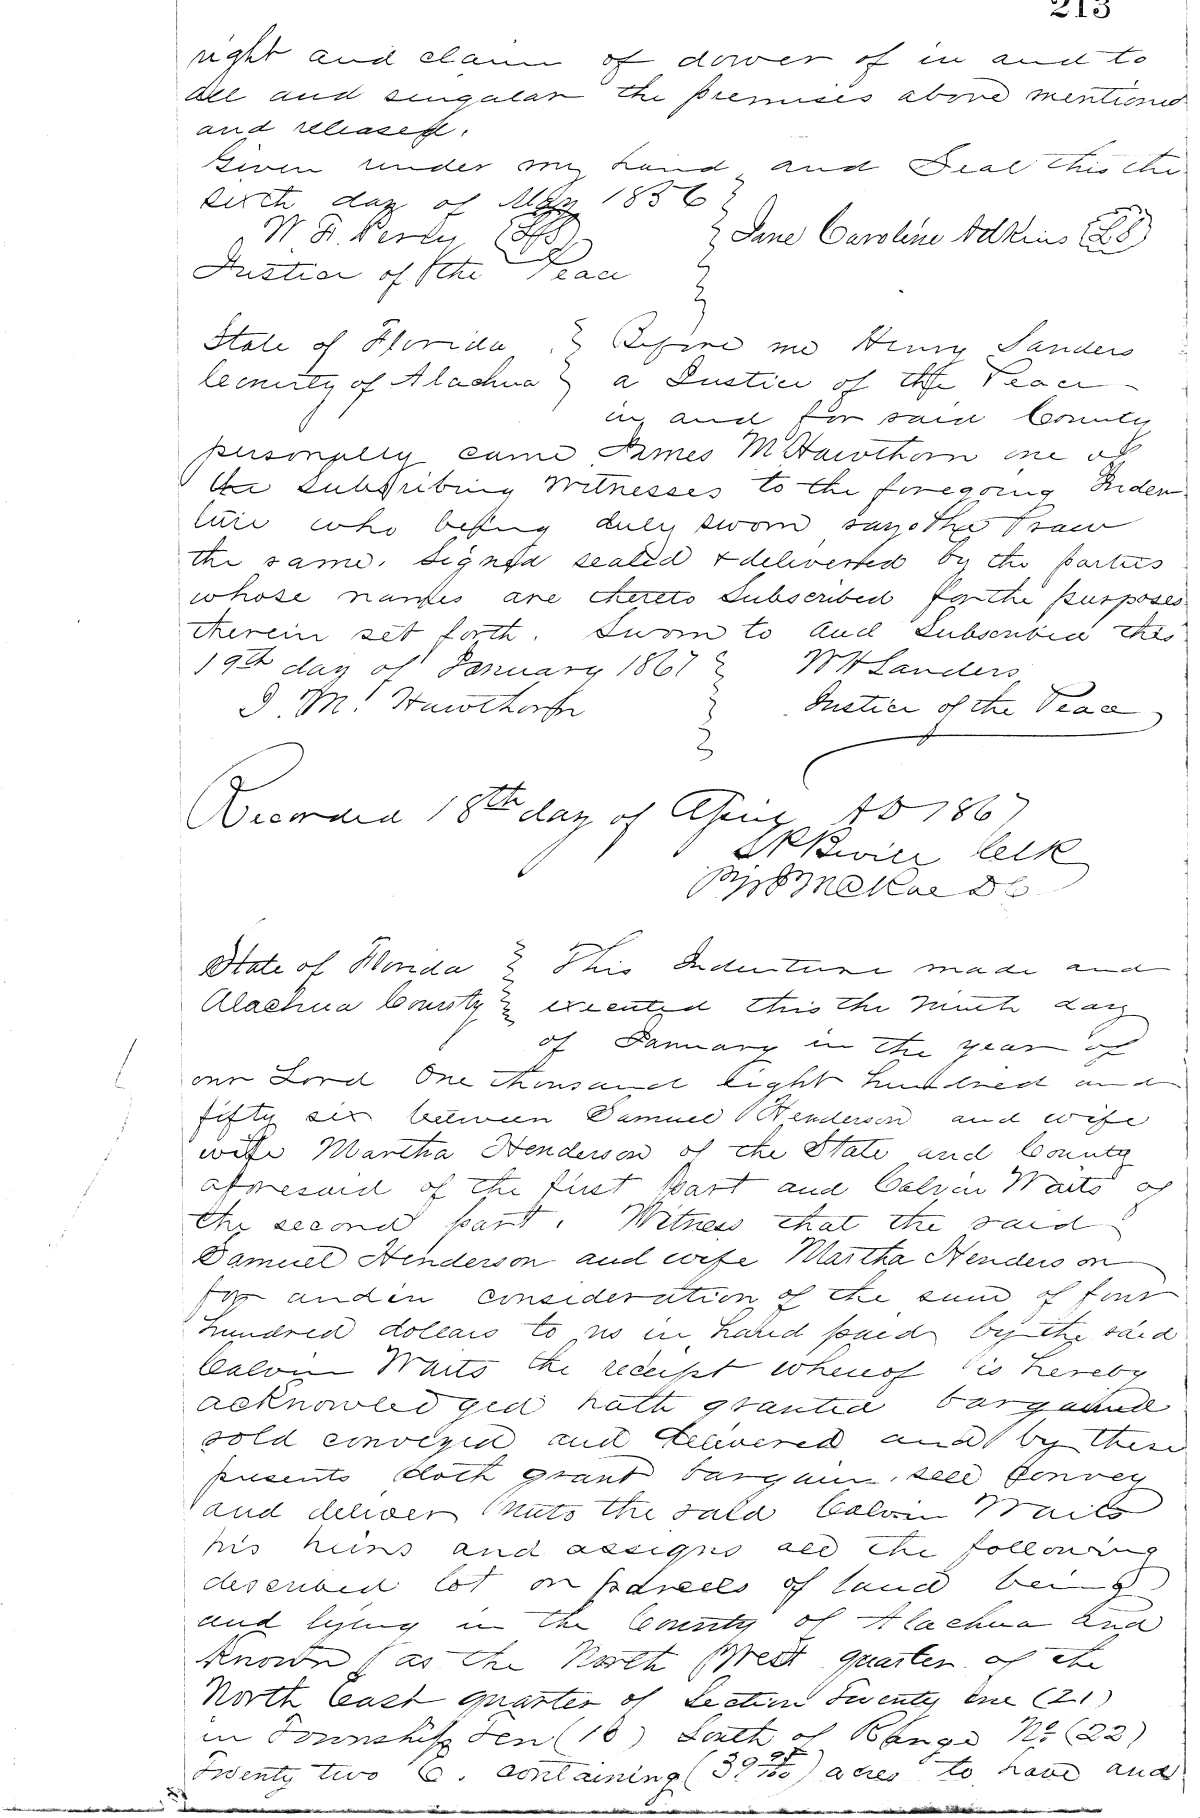 213
right and claim of dower of in and to
all and singular the premises above mentioned
and released.
Given under my hand and Seal this the
sixth day of May 1856
W F. Perry (LS) Jane Caroline Adkins (LS)
Justice of the Peace
State of Florida Before me Henry Sanders
County of Alachua a Justice of the Peace
in and for said County
personally came James M Hawthorn one of
the Subscribing Witnesses to the foregoing Inden
ture who being duly sworn says he saw
the same. Signed sealed & delivered by the parties
whose names are thereto Subscribed for the purposes
therein set forth. Sworn to and Subscribed this
19th day of January 1867 W H Sanders
J. M. Hawthorn Justice of the Peace
Recorded 18th day of April AD 1867
Clk
McRae DC
State of Florida This Indenture made and
Alachua County executed this the ninth day
of January in the year of
our Lord One thousand eight hundred and
fifty six between Samuel Henderson and wife
wife Martha Henderson of the State and County
aforesaid of the first part and Calvin Waits of
the second part. Witness that the said
Samuel Henderson and wife Martha Henderson
for and in consideration of the sum of four
hundred dollars to us in hand paid by the said
Calvin Waits the receipt whereof is hereby
acknowledged hath granted bargained
sold conveyed and delivered and by these
presents doth grant bargain, sell convey
and deliver unto the said Calvin Waits
his heirs and assigns all the following
described lot or parcels of land being
and lying in the County of Alachua and
known as the North West quarter of the
North East quarter of Section Twenty one (21)
in Township Ten (10) South of Range No (22)
Twenty two E. containing (39 /100) acres to have and